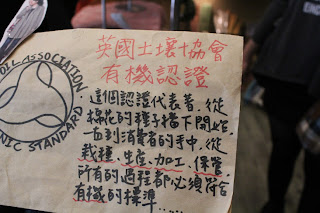 英國土壤協會
有機認證
OIL ASSOCIATION
NIC STANDARD
這個認證代表著,從
棉花的種子播下開始,
一直到消費者的手中,從
栽種、生產、加工、保管,
所有的過程都必須符合
有機的標準.....